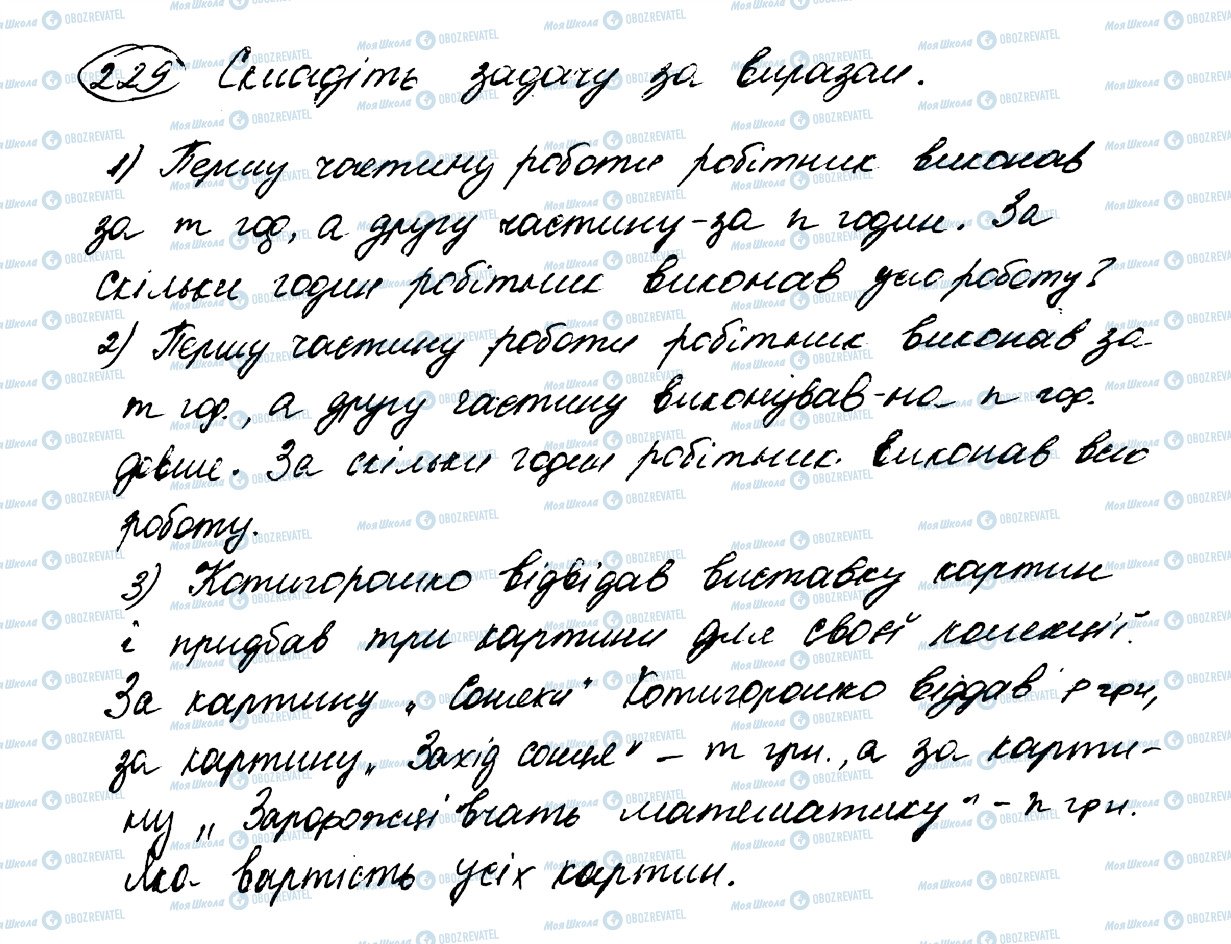 229 Складіть задачу за виразом.
1) Першу частину роботи робітник виконав
за m год, а другу частину - за n годин. За
скільки годин робітник виконав усю роботу?
2) Першу частину роботи робітник виконав за
m год., а другу частину виконував - на n год.
довше. За скільки годин робітник виконав всю
роботу.
3) Котигорошко відвідав виставку картин
і придбав три картини для своєї колекції.
За картину „Сонечки" Котигорошко віддав p грн,
за картину „Захід сонця" – m грн., а за карти-
ну „Запорожці вчать математику" – n грн.
Яка вартість усіх картин.